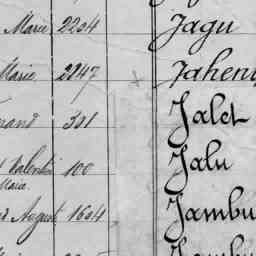 Marie 2204 Jagu
Marie 2247 Jaheny
301 Jalet
Valentin 100 Jalu
Marie.
August 1604 Jambu